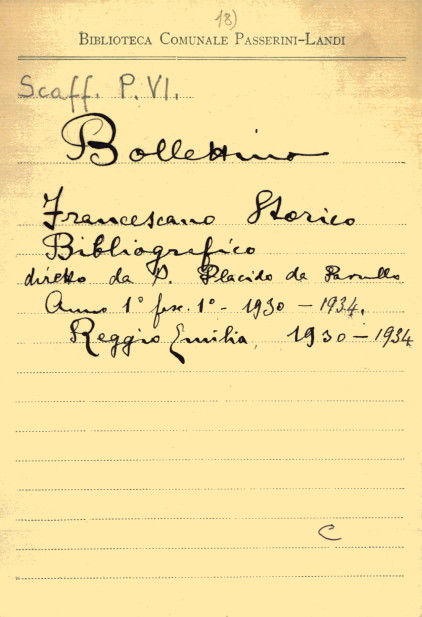 18)
BIBLIOTECA COMUNALE PASSERINI-LANDI
Scaff. P. VI.
Bollettino
Francescano Storico
Bibliografico
diretto da P. Placido da Pavullo
Anno 1° fasc. 1° - 1930 - 1934.
Reggio Emilia, 1930 - 1934
C